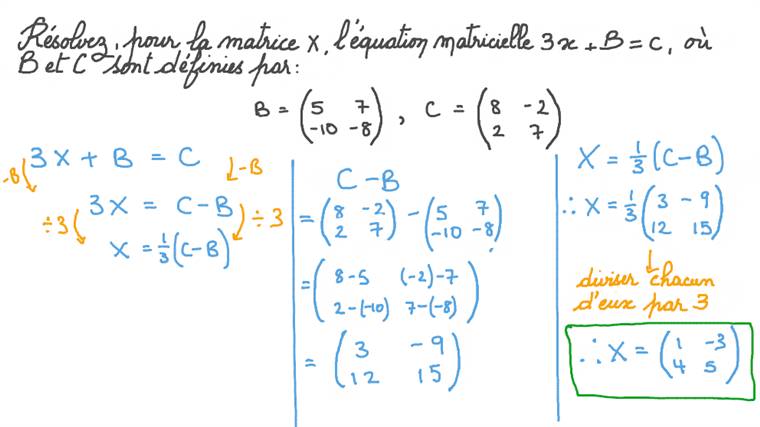 Résolvez, pour la matrice X, l'équation matricielle 3x + B = C, où
B et C sont définies par:
B = (5 7
-10 -8), C = (8 -2
2 7)
3X + B = C
-B -B
3X = C - B
÷3 ÷3
X = 1/3 (C - B)
C - B
= (8 -2
2 7) - (5 7
-10 -8)
= (8-5 (-2)-7
2-(-10) 7-(-8))
= (3 -9
12 15)
X = 1/3 (C - B)
∴ X = 1/3 (3 -9
12 15)
diviser chacun
d'eux par 3
∴ X = (1 -3
4 5)